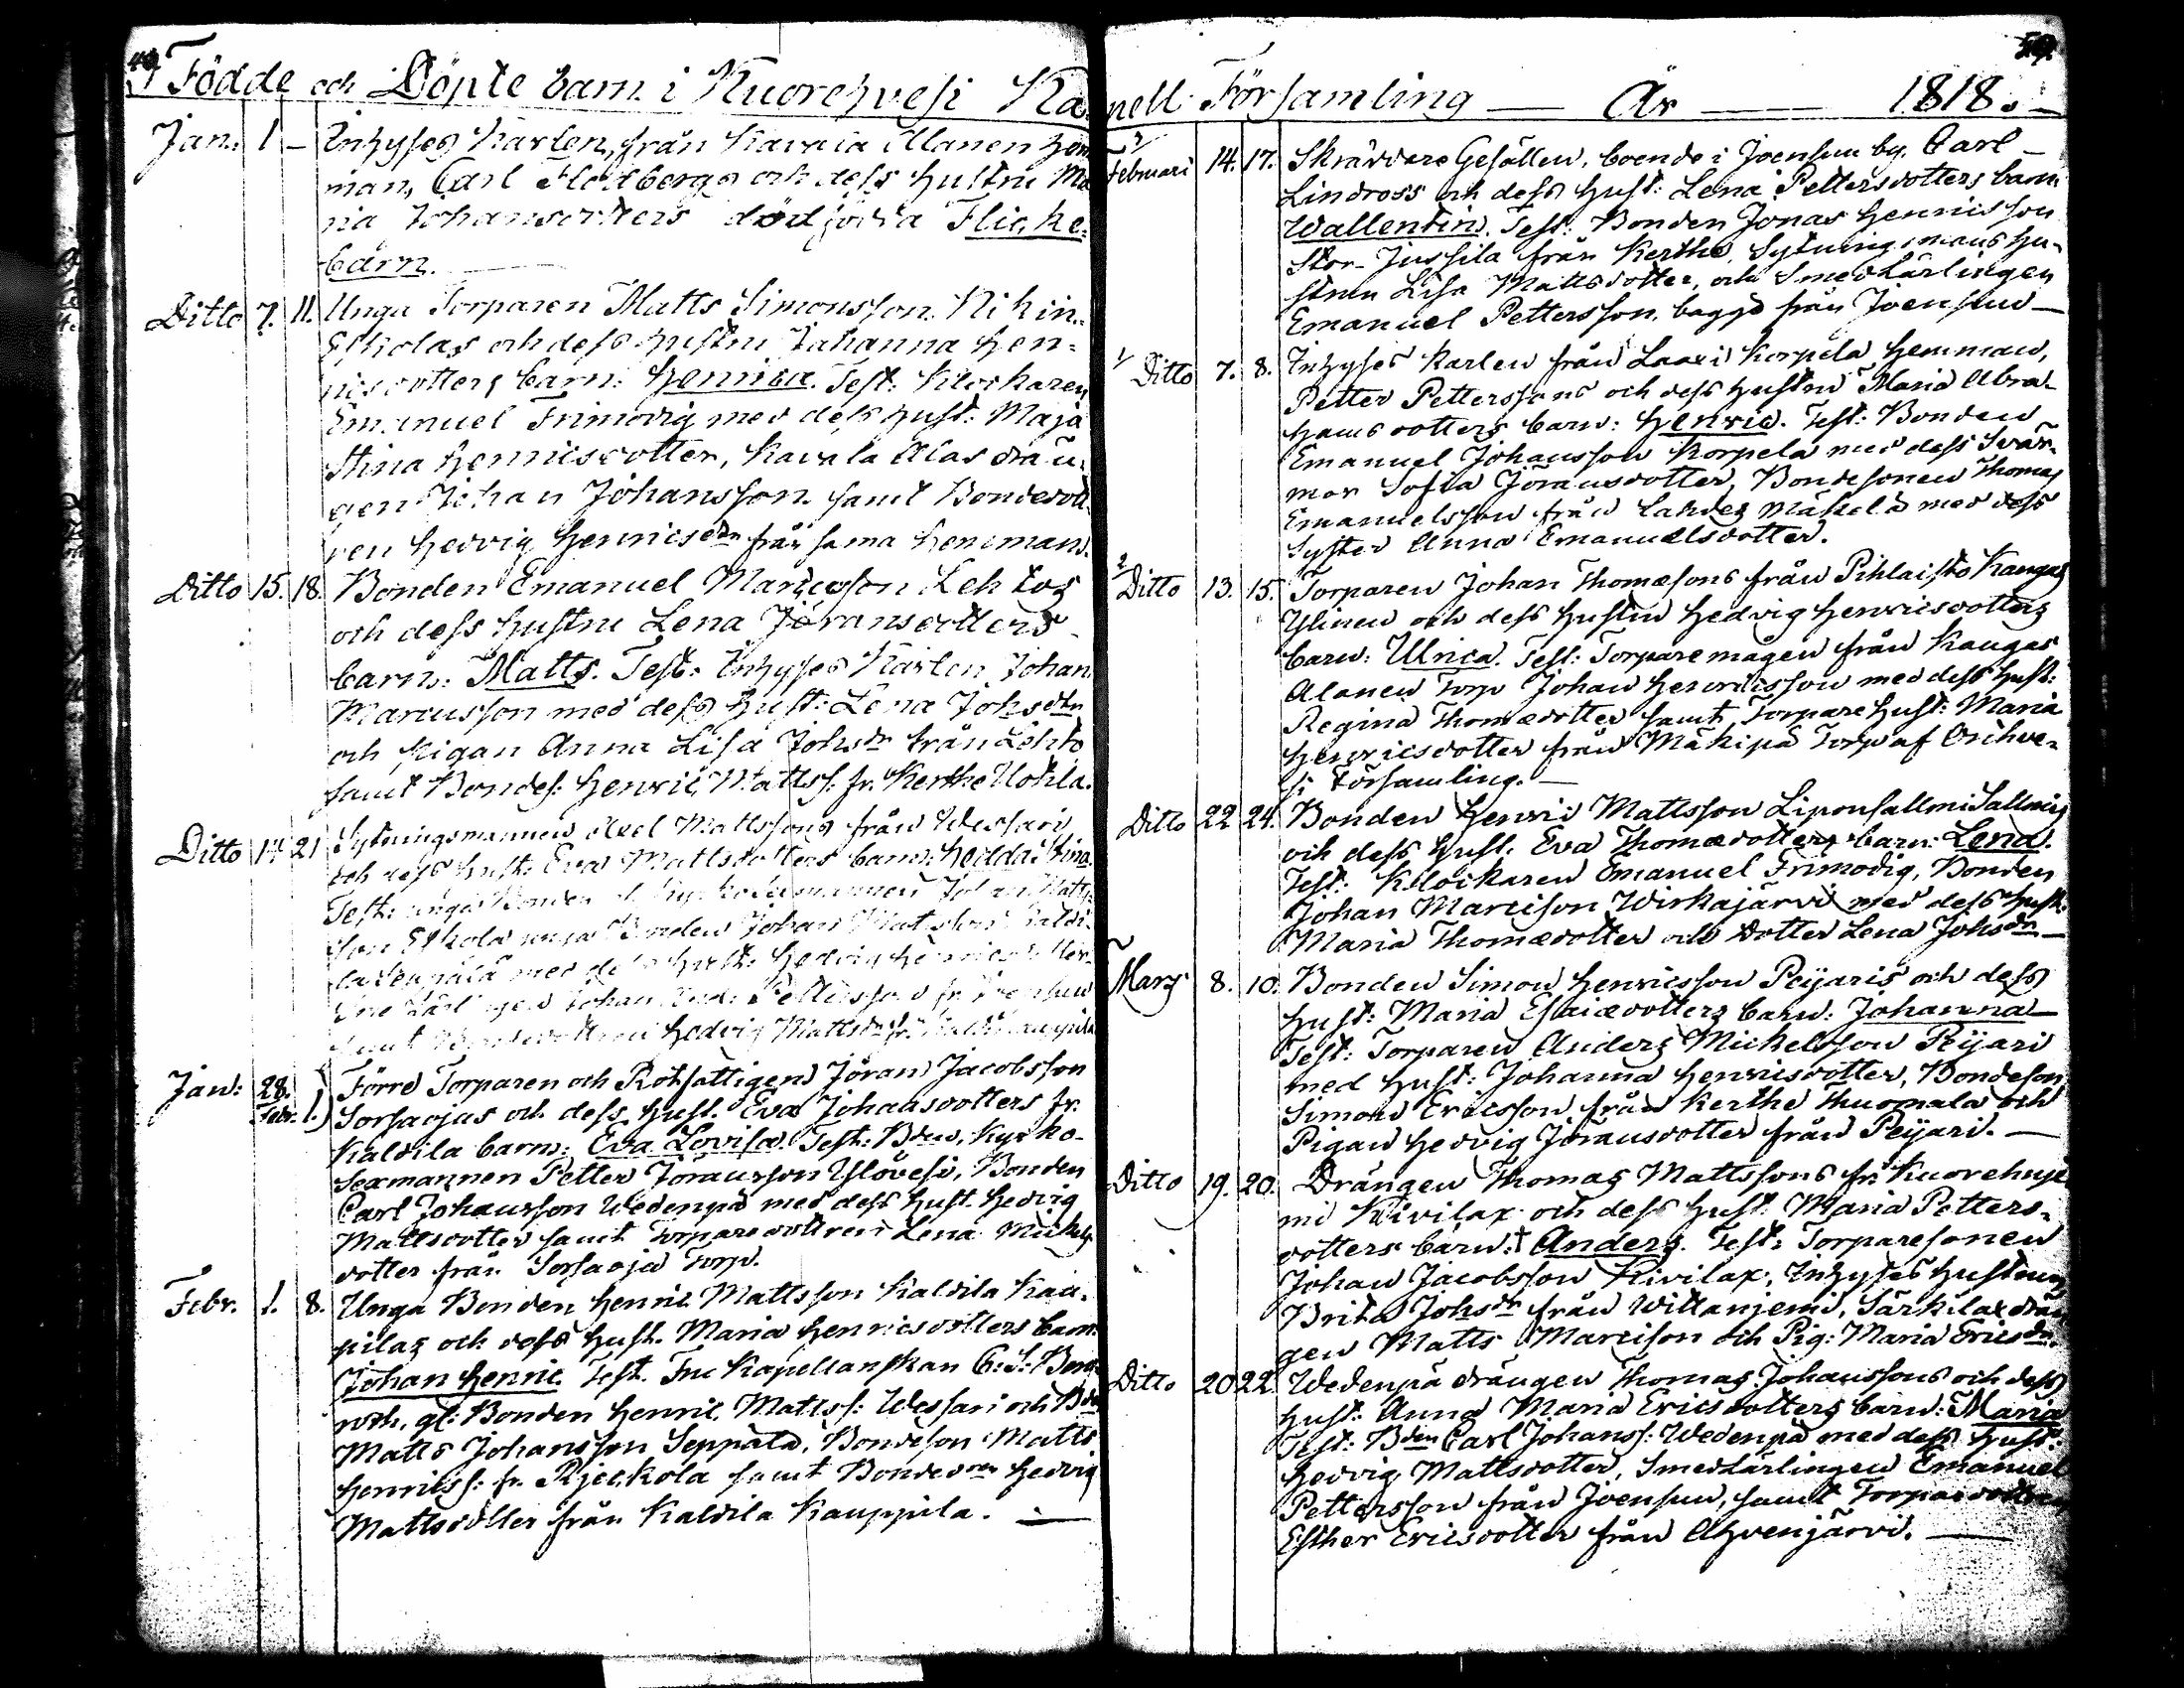 Födde och Döpte barn i Kuorehvesi Ka
Jan. 1 – Inhyses Karlen, från Kavala Alanen Hem
man, Carl Flodbergs och dess Hustru Ma
ria Johansdotters dödfödda Flicke-
barn.
Ditto 7. 11. Unga Torparen Matts Simonsson
och dess Hustru Johanna Hen-
ricsdotters barn: Henrica. Test: Klockaren
Emanuel Frimodig med dess Hust: Maja
Stina Henricsdotter, Kavala Alas drän-
gen Johan Johansson samt Bondedott
ren Hedvig Henricsdr från sama Hemman.
Ditto 15. 18. Bonden Emanuel Marcusson Lehtos
och dess Hustru Lena Jöransdotters
barn: Matts. Test: Inhyses Karlen Johan
Marcusson med dess Hust: Lena Johsdtr
och Pigan Anna Lisa Johsdr från Lehto
samt Bondes: Henric Mattss: fr. Kerthe Uotila.
Ditto 21 Sytningsmannen Axel Mattssons från Wessari
och dess Hust: Eva Mattsdotters barn: Hedda Stina.
Test: unga Bonden Johan Matts
son Eskola unga Bonden Johan Mattsson
med dess Hust: Hedvig Henricsdotter
Johan Pettersson fr. Joensuu
samt Hedvig Mattsdr fr. Kaldila Kauppila
Jan: 28. Febr. 1. Förre Torparen och Rotfattigen Jöran Jacobsson
Sorsaojas och dess Hust. Eva Johansdotters fr.
Kaldila barn: Eva Lovisa. Test: Bden, Kyrko-
Sexmannen Petter Jöransson Ylövesi, Bonden
Carl Johansson Wedenpä med dess Hust. Hedvig
Mattsdotter samt Torparedottren Lena Michels
dotter från Sorsaoja Torp.
Febr. 1. 8. Unga Bonden Henric Mattsson Kaldila Kau-
pilas och dess Hust. Maria Henricsdotters barn:
Johan Henric. Test. Fru Kapellanskan C: S:
gl: Bonden Henric Mattss: Wessari och Bden
Matts Johansson Seppälä, Bondeson Matts
Henricss: fr. samt Bondedren Hedvig
Mattsdotter från Kaldila Kauppila.
pell Församling — År — 1818.
3/ Februari 14. 17. Skräddare Gesällen, boende i Joensuu by. Carl
Lindross och dess Hust: Lena Pettersdotters barn:
Wallentin. Test: Bonden Jonas Henricsson
Stor-Jussila från Kerthe, Sytningsmans Hu-
strun Lisa Mattsdotter, och SmedLärlingen
Emanuel Pettersson, bägge från Joensuu
1/ Ditto 7. 8. Inhyses Karlen från Laaxi Korpela Hemman,
Petter Petterssons och dess Hustru Maria Abra-
hamsdotters barn: Henric. Test: Bonden
Emanuel Johansson Korpela med dess Svär-
mor Sofia Jöransdotter, Bondesonen Thomas
Emanuelsson från Lahdes Mäkelä med dess
Syster Anna Emanuelsdotter.
2 Ditto 13. 15. Torparen Johan Thomæsons från Pihlaisto Kangas
Ylinen och dess Hustru Hedvig Henricsdotters
barn: Ulrica. Test: Torparemågen från Kangas
Alanen Torp Johan Henricsson med dess Hust:
Regina Thomædotter samt Torpare Hust: Maria
Henricsdotter från Mäkipä Torp af Orihve-
si Församling.
Ditto 22 24. Bonden Henric Mattsson Liponsallmi Sallmis
och dess Hust. Eva Thomædotters barn: Lena.
Test: Klockaren Emanuel Frimodig, Bonden
Johan Marcison Wirkajärvi med dess Hust:
Maria Thomædotter och dotter Lena Johsdr
Mars 8. 10. Bonden Simon Henricsson Peijaris och dess
Hust: Maria Esaiædotters barn: Johanna
Test: Torparen Anders Mickelsson Peijari
med Hust: Johanna Henricsdotter, Bondeson
Simon Ericsson från Kerthe Thuomala och
Pigan Hedvig Jöransdotter från Peijari.
Ditto 19. 20. Drängen Thomas Mattssons fr.
Kivilax och dess Hust. Maria Petters-
dotters barn: † Anders. Test: Torparesonen
Johan Jacobsson Kivilax, Inhyses Hustrun
Brita Johsdr från Wittaniemi, Särkilax drän
gen Matts Marcison och Pig: Maria Ericsdr.
Ditto 20 22. Wedenpä drängen Thomas Johanssons och dess
Hust: Anna Maria Ericsdotters barn: Maria
Test: Bden Carl Johanss: Wedenpä med dess Hust:
Hedvig Mattsdotter, SmedLärlingen Emanuel
Pettersson från Joensuu, samt Torparedottren
Esther Ericsdotter från Ahvenjärvi.